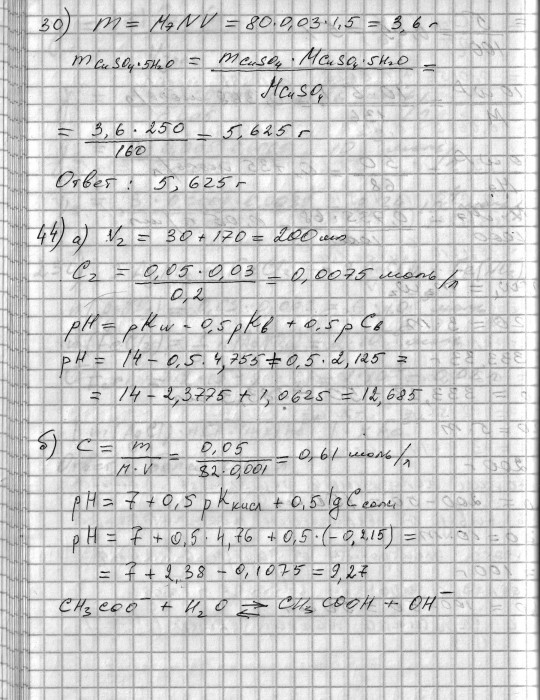 30) m = MэNV = 80·0,03·1,5 = 3,6 г
mCuSO4·5H2O = mCuSO4 · MCuSO4·5H2O / MCuSO4 =
= 3,6 · 250 / 160 = 5,625 г
Ответ : 5,625 г
44) а) V2 = 30 + 170 = 200 мл
C2 = 0,05 · 0,03 / 0,2 = 0,0075 моль/л
pH = pKw - 0,5pKв + 0,5pCв
pH = 14 - 0,5·4,755 + 0,5·2,125 =
= 14 - 2,3775 + 1,0625 = 12,685
б) C = m / M·V = 0,05 / 82·0,001 = 0,61 моль/л
pH = 7 + 0,5pKкисл + 0,5lgCсоли
pH = 7 + 0,5·4,76 + 0,5·(-0,215) =
= 7 + 2,38 - 0,1075 = 9,27
CH3COO⁻ + H2O ⇄ CH3COOH + OH⁻